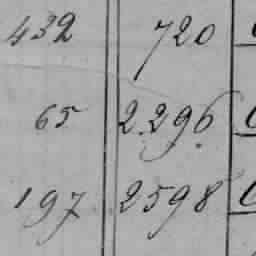 432 720
65 2.296
197 2598